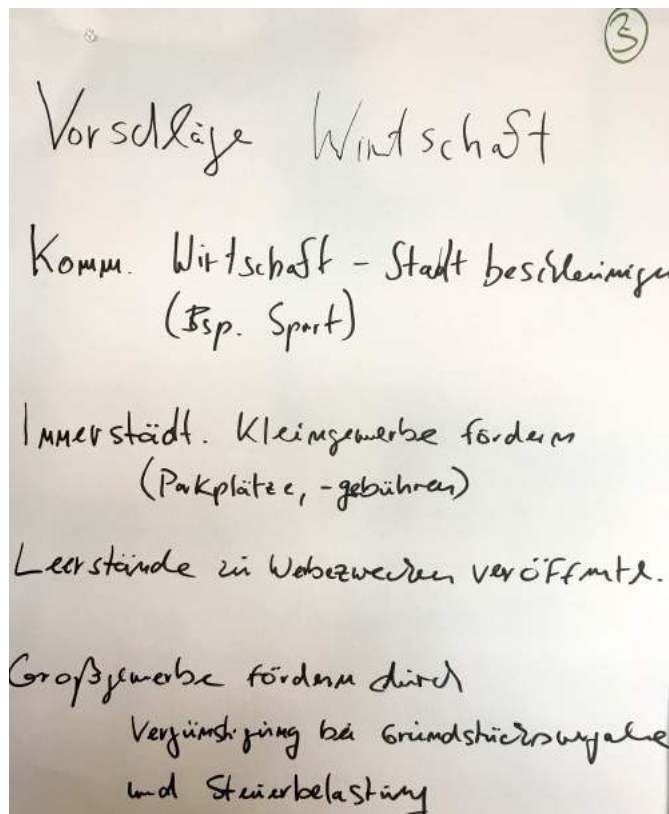 3
Vorschläge Wirtschaft
Komm. Wirtschaft - Stadt beschleunigen
(Bsp. Sport)
Innerstädt. Kleingewerbe fördern
(Parkplätze, -gebühren)
Leerstände zu Webezwecken veröffentl.
Großgewerbe fördern durch
Vergünstigung bei Grundstücksvergabe
und Steuerbelastung